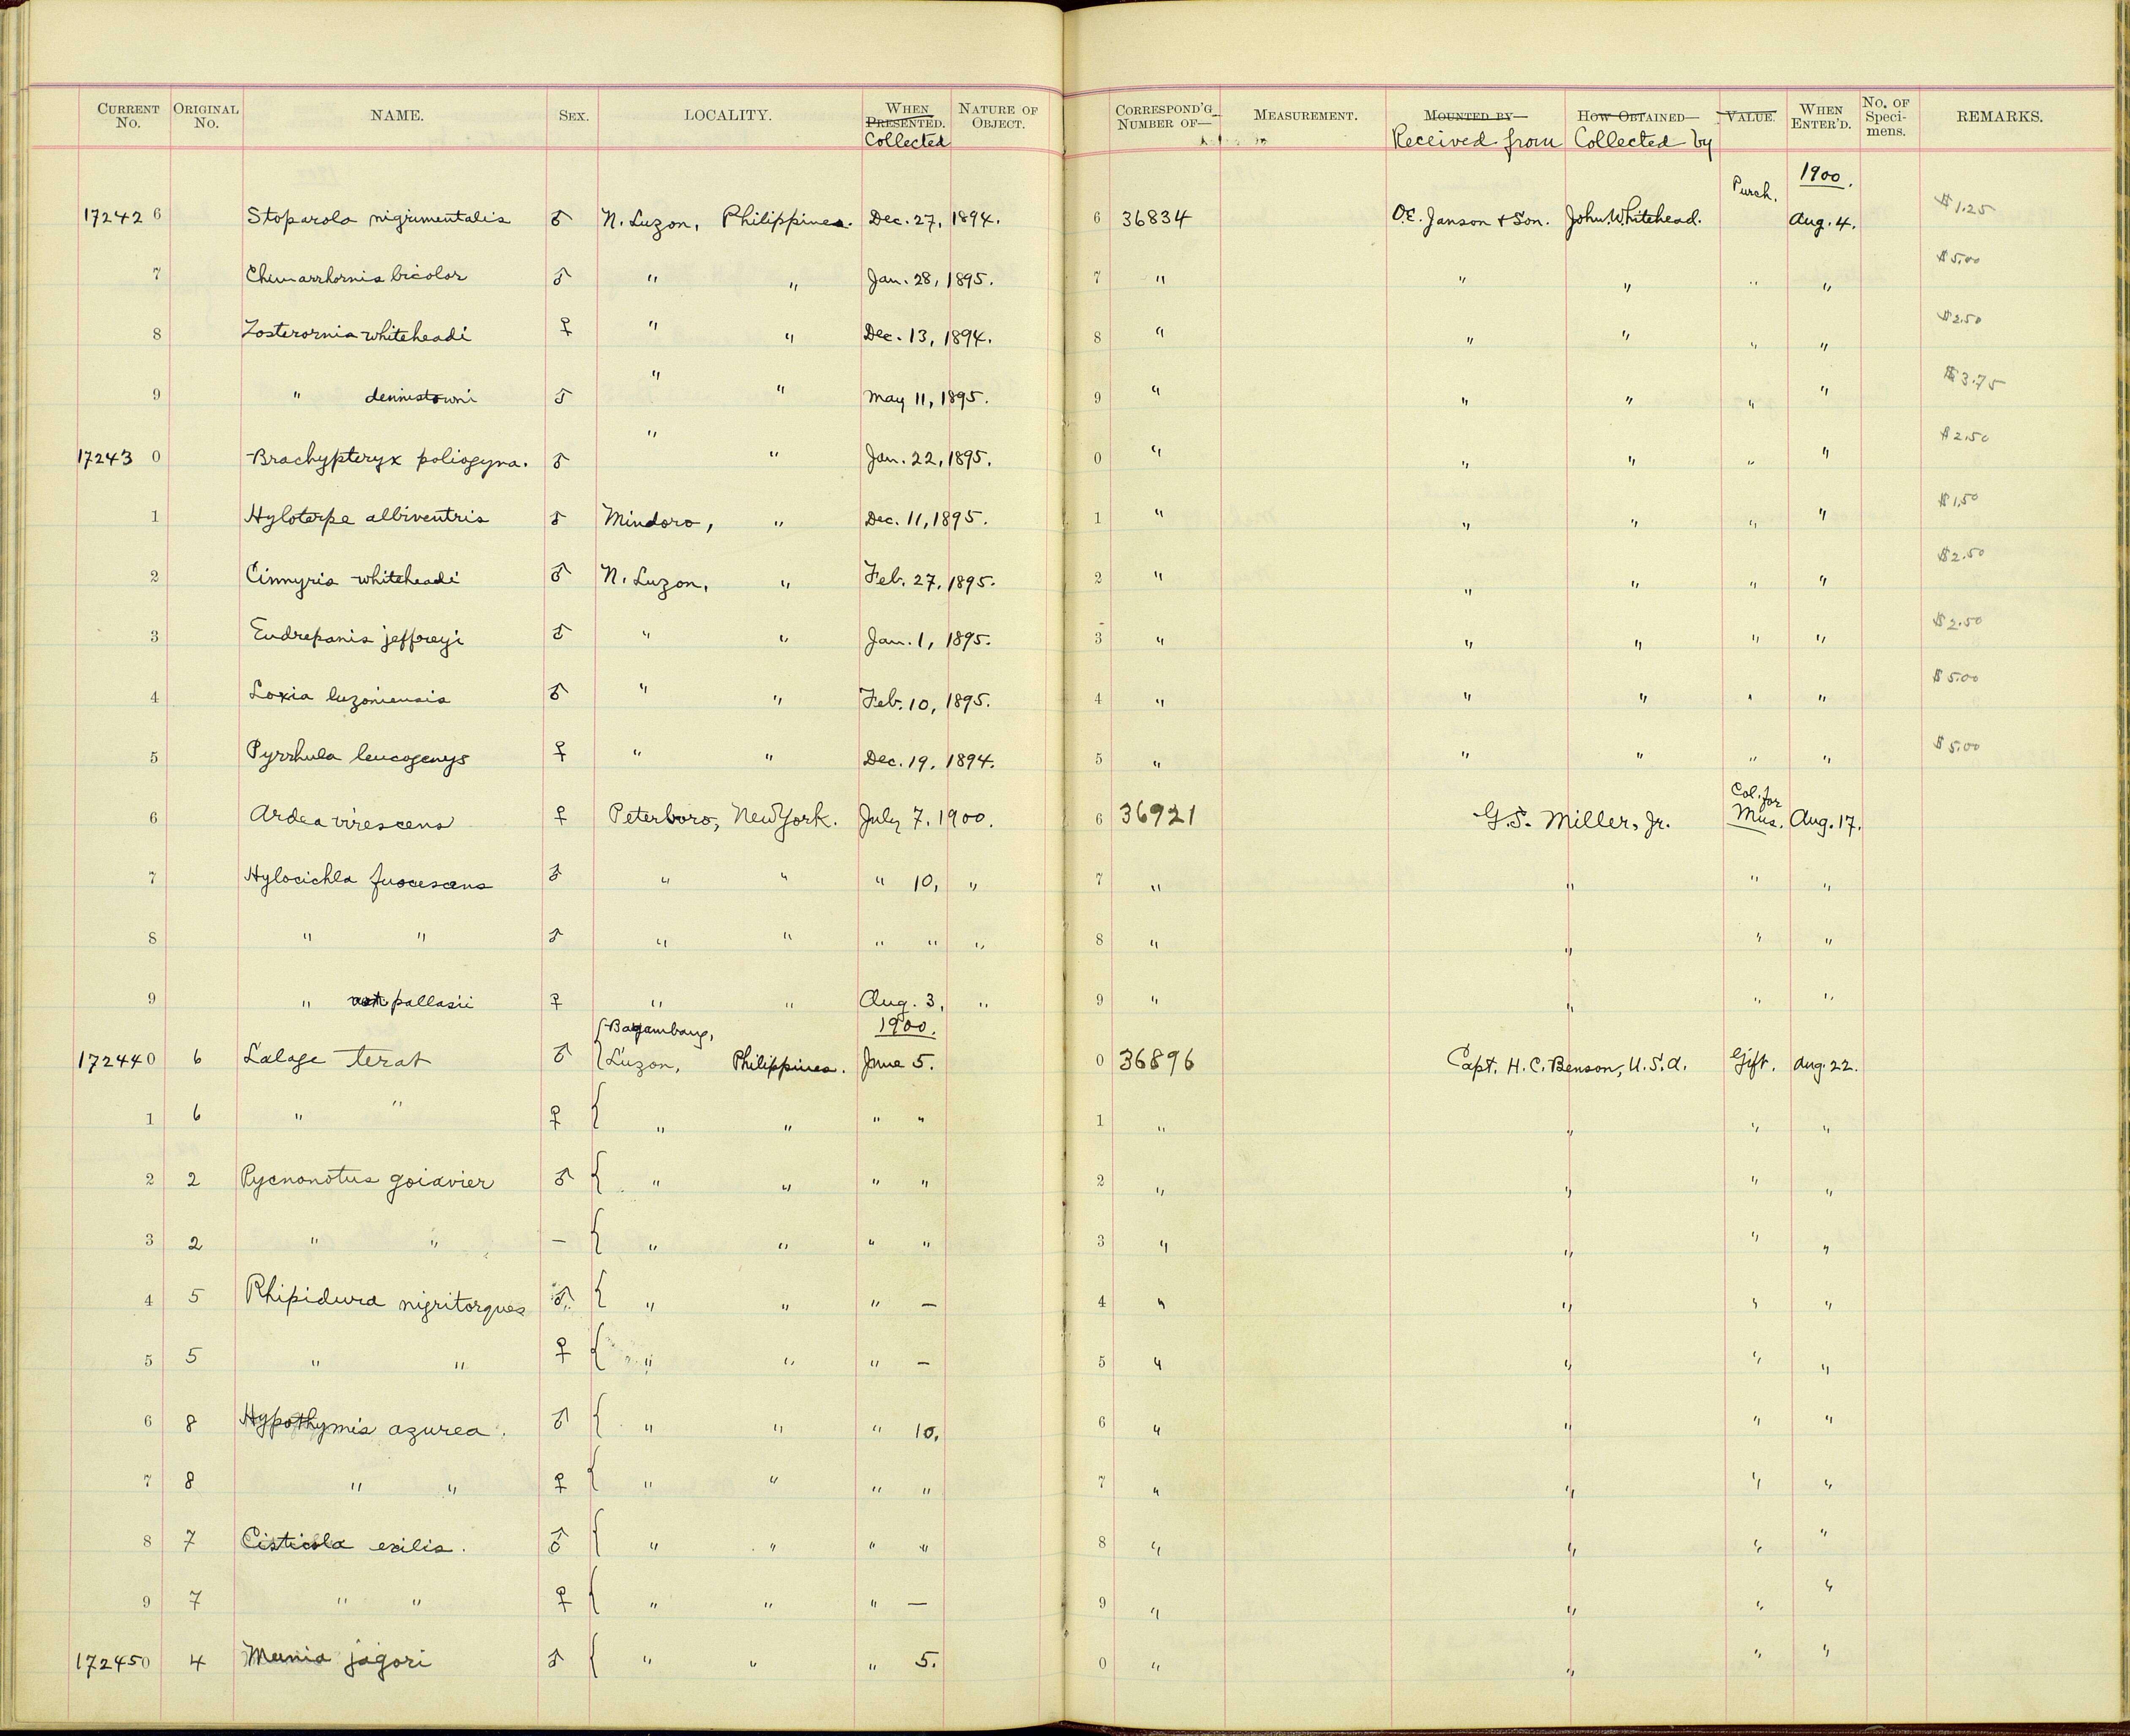 CURRENT No. ORIGINAL No. NAME. SEX. LOCALITY. WHEN PRESENTED. Collected NATURE OF OBJECT. CORRESPOND'G NUMBER OF— MEASUREMENT. MOUNTED BY— Received from HOW OBTAINED— Collected by VALUE. WHEN ENTER'D. No. OF Speci-mens. REMARKS.
1900.
17242 6 Stoparola nigrimentalis ♂ N. Luzon, Philippines. Dec. 27, 1894. 6 36834 O.E. Janson & Son. John Whitehead. Purch. Aug. 4. $1.25
7 Chimarrhornis bicolor ♂ " " Jan. 28, 1895. 7 " " " " " $5.00
8 Zosterornis whiteheadi ♀ " " Dec. 13, 1894. 8 " " " " " $2.50
9 " dennistouni ♂ " " May 11, 1895. 9 " " " " " $3.75
17243 0 Brachypteryx poliogyna. ♂ " " Jan. 22, 1895. 0 " " " " " $2.50
1 Hyloterpe albiventris ♂ Mindoro, " Dec. 11, 1895. 1 " " " " " $1.50
2 Cinnyris whiteheadi ♂ N. Luzon, " Feb. 27, 1895. 2 " " " " " $2.50
3 Eudrepanis jeffreyi ♂ " " Jan. 1, 1895. 3 " " " " " $2.50
4 Loxia luzoniensis ♂ " " Feb. 10, 1895. 4 " " " " " $5.00
5 Pyrrhula leucogenys ♀ " " Dec. 19, 1894. 5 " " " " " $5.00
6 Ardea virescens ♀ Peterboro, New York. July 7, 1900. 6 36921 G.S. Miller, Jr. Col. for Mus. Aug. 17.
7 Hylocichla fuscescens ♂ " " " 10, " 7 " " " "
8 " " ♂ " " " " " 8 " " " "
9 " pallasii ♀ " " Aug. 3, " 9 " " " "
{Bayambang, 1900.
172440 6 Lalage terat ♂ {Luzon, Philippines. June 5. 0 36896 Capt. H. C. Benson, U.S.A. Gift. Aug. 22.
1 6 " " ♀ { " " " " 1 " " " "
2 2 Pycnonotus goiavier ♂ { " " " " 2 " " " "
3 2 " " — { " " " " 3 " " " "
4 5 Rhipidura nigritorques ♂ { " " " — 4 " " " "
5 5 " " ♀ { " " " — 5 " " " "
6 8 Hypothymis azurea. ♂ { " " " 10. 6 " " " "
7 8 " " ♀ { " " " " 7 " " " "
8 7 Cisticola exilis. ♂ { " " " " 8 " " " "
9 7 " " ♀ { " " " — 9 " " " "
172450 4 Munia jagori ♂ { " " " 5. 0 " " " "